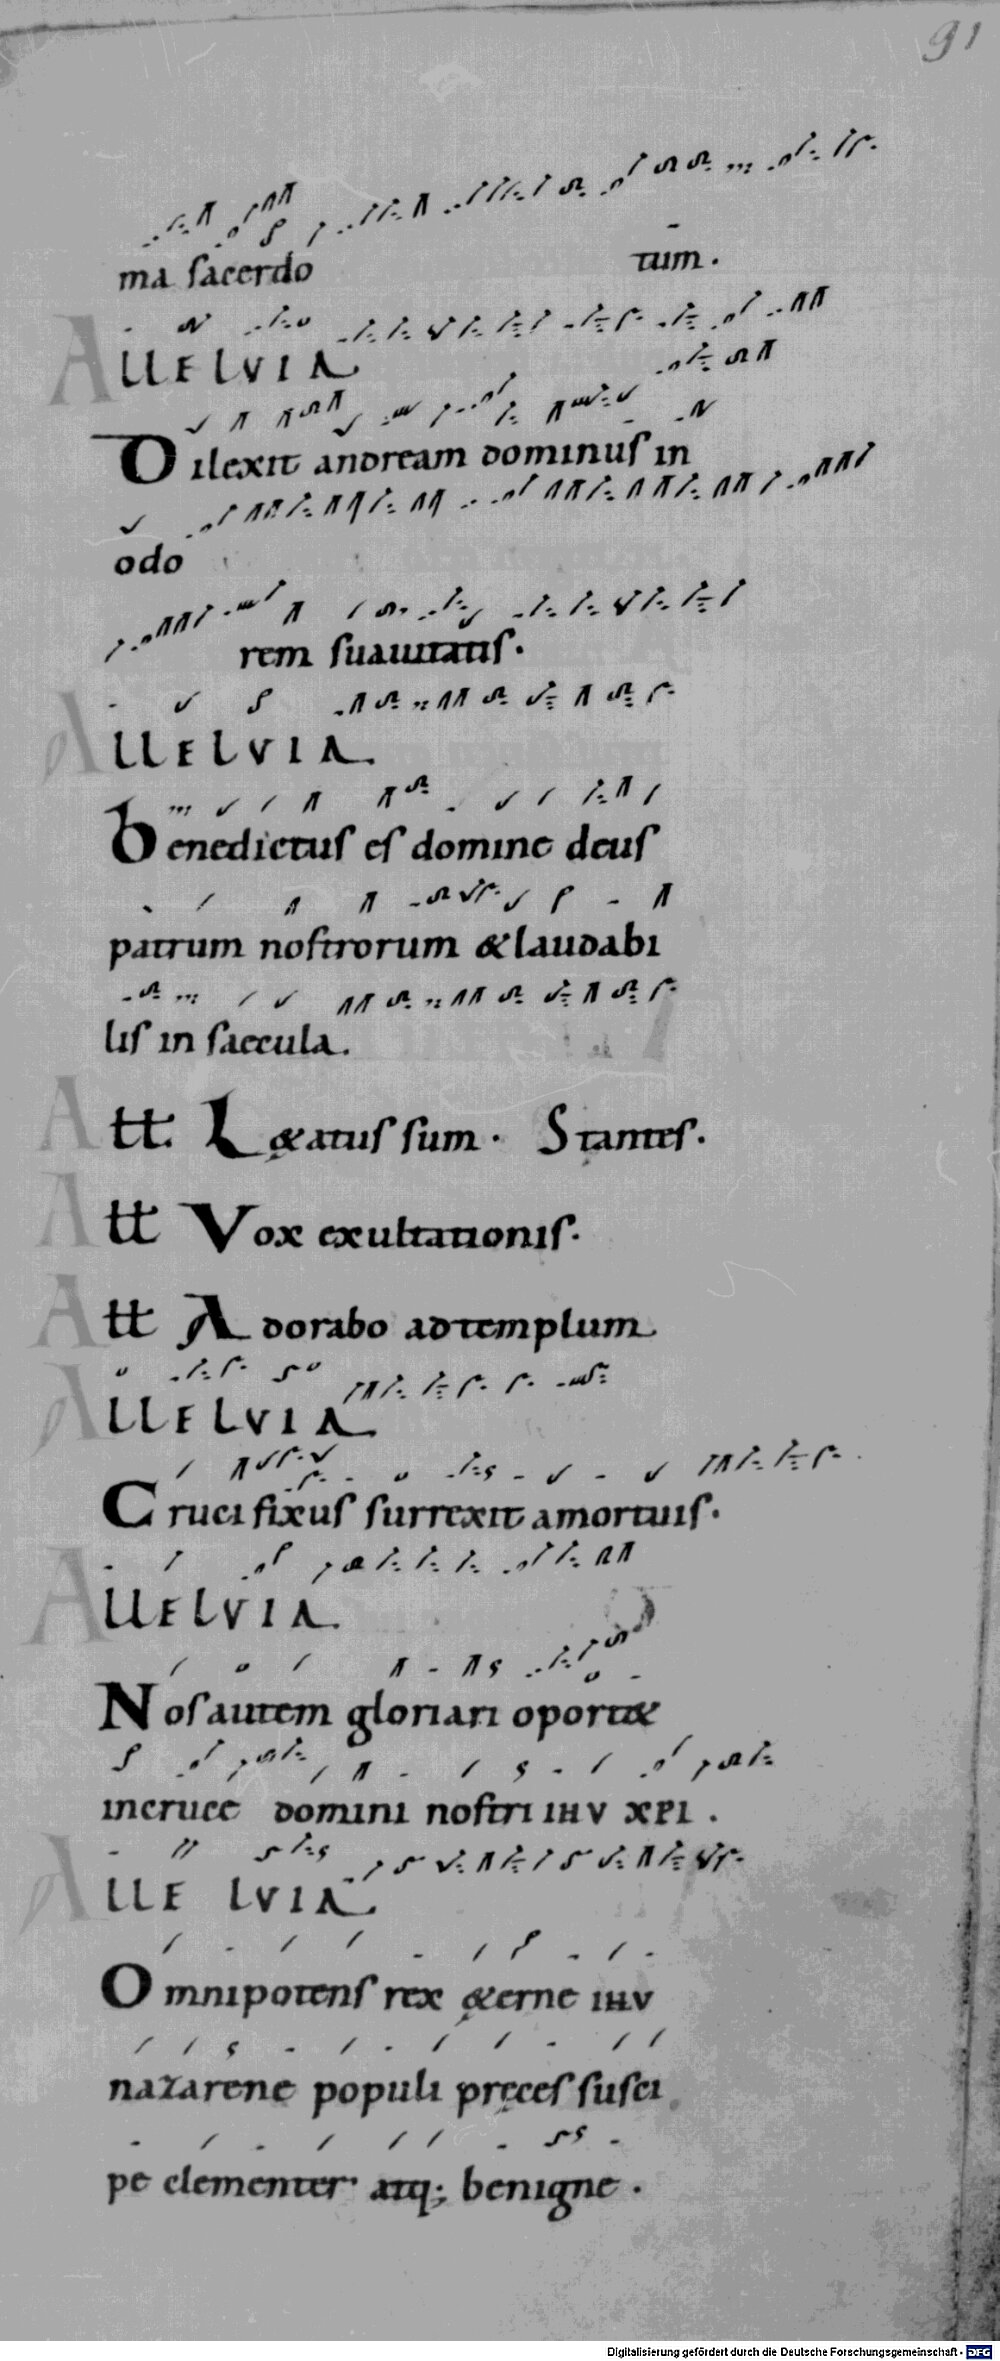 91
ma sacerdo tum .
ALLELVIA
Dilexit andream dominus in
odo
rem suauitatis .
ALLELVIA .
benedictus es domine deus
patrum nostrorum & laudabi
lis in saecula .
All. L&atus sum . Stantes .
All Vox exultationis .
All Adorabo ad templum
ALLELVIA .
Crucifixus surrexit a mortuis .
ALLELVIA .
Nos autem gloriari oport&
in cruce domini nostri IHV XPI .
ALLELVIA .
Omnipotens rex &erne IHV
nazarene populi pręces susci
pe clementer atq; benigne .
Digitalisierung gefördert durch die Deutsche Forschungsgemeinschaft - DFG